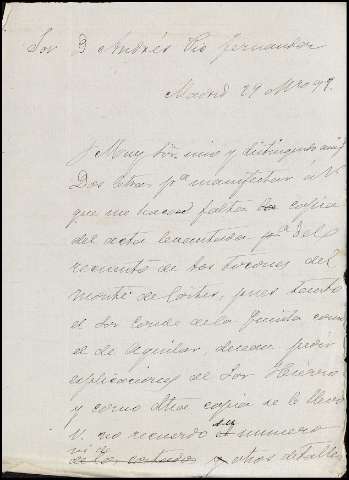 Sor D Andrés Pio Fernandez
Madrid 29 Mzo 99.
Muy Sor. mio y distinguido amigo
Dos letras pª manifestar á V
que me hacen falta la copia
del acta levantada pª del
recuento de los tocones del
monte de Cortes, pues tanto
el Sor Conde de la Quinta como
el de Aguilar, desean pedir
esplicaciones al Sor Hierro
y como otra copia se la llevó
V. no recuerdo el su numero
ni de los y otros detalles